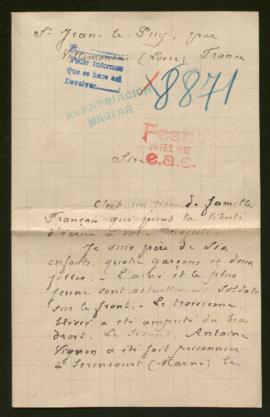 St Jean-le-Puy, par
Villemontais (Loire) France
Pedir informes
Que se hace así
Devolver
REPATRIACIÓN
MILITAR
8871
Fecho
FEB. 1917
e.a.c.
Sire
C'est un père de famille
Français qui prend la liberté
d'écrire à votre Majesté.
Je suis père de six
enfants, quatre garçons et deux
filles. - L'aîné et le plus
jeune sont actuellement soldats
sur le front. - Le troisième
blessé a été amputé du bras
droit. Le second, Antoine
Vignon a été fait prisonnier
à Sermicourt (Marne) le